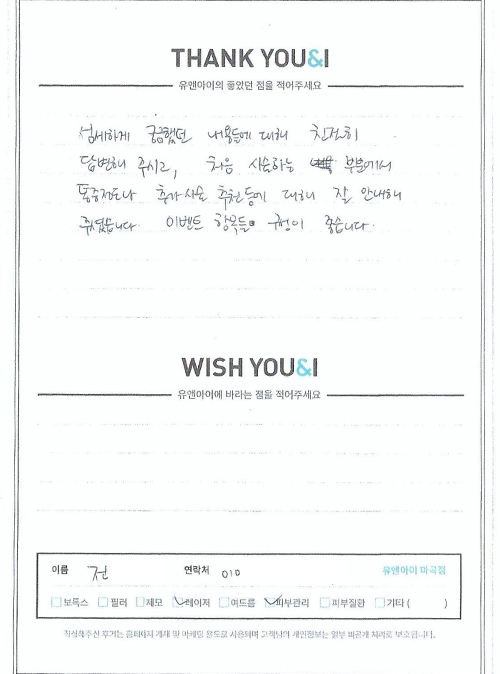 THANK YOU&I
유앤아이의 좋았던 점을 적어주세요
섬세하게 궁금했던 내용들에 대해 친절히
답변해 주시고, 처음 시술하는 부분에서
통증정도나 추가시술 추천등에 대해 잘 안내해
주셨습니다. 이벤트 항목들 구성이 좋습니다.
WISH YOU&I
유앤아이에 바라는 점을 적어주세요
이름 전 연락처 010 유앤아이 마곡점
보톡스 필러 제모 레이저 여드름 피부관리 피부질환 기타 ( )
작성해주신 후기는 홈페이지 게재 및 마케팅 용도로 사용되며 고객님의 개인정보는 일부 비공개 처리로 보호됩니다.